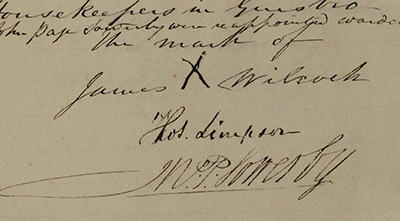 Housekeepers in
John Page Sowerby were reappointed warden
The mark of
James X Wilcock
Thos. Simpson
J. P. Sowerby